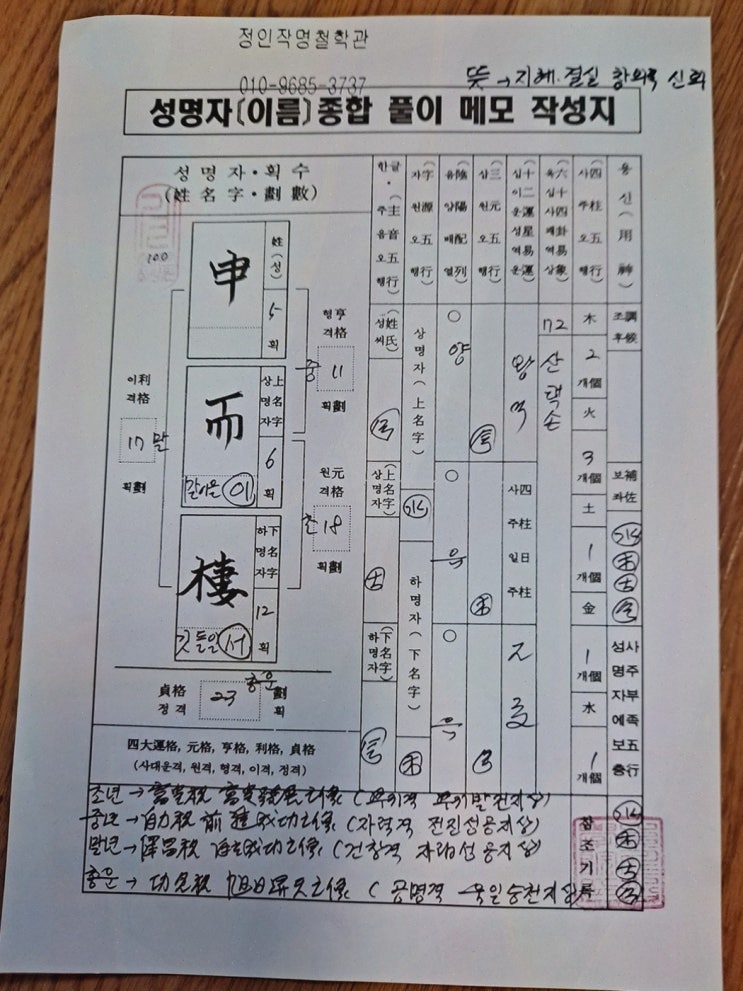 정인작명철학관
010-9685-3737
뜻→지혜.결실 창의력 신뢰
성명자(이름)종합 풀이 메모 작성지
성명자·획수
(姓名字·劃數)
100
申
姓(성)
5
획
而
상명자 上名字
6
획
말이을 이
棲
하명자 下名字
12
획
깃들일 서
형격 亨格
중 11
획劃
원격 元格
초 18
획劃
이격 利格
17 말
획劃
貞格
정격
23
총운
劃
획
四大運格, 元格, 亨格, 利格, 貞格
(사대운격, 원격, 형격, 이격, 정격)
한글·주음오행(主音五行)
성씨(姓氏)
상명자(上名字)
土
하명자(下名字)
자원오행(字源五行)
상명자(上名字)
水
하명자(下名字)
木
음양배열(陰陽配列)
○
양
○
음
○
음
삼원오행(三元五行)
木
십이운성역운(十二運星易運)
사주일주 四柱日柱
육십사괘역상(六十四卦易象)
72
산택손
사주오행(四柱五行)
木
2
개個
火
3
개個
土
1
개個
金
1
개個
水
1
개個
용신(用神)
조후 調候
보좌 補佐
水
木
土
金
성명자에 보충
사주부족오행
참조기록
水
木
土
초년→
중년→自力格 前進成功之像 (자력격 전진성공지상)
말년→ (건창격 자립성공지상)
총운→功名格 旭日昇天之像 (공명격 욱일승천지상)